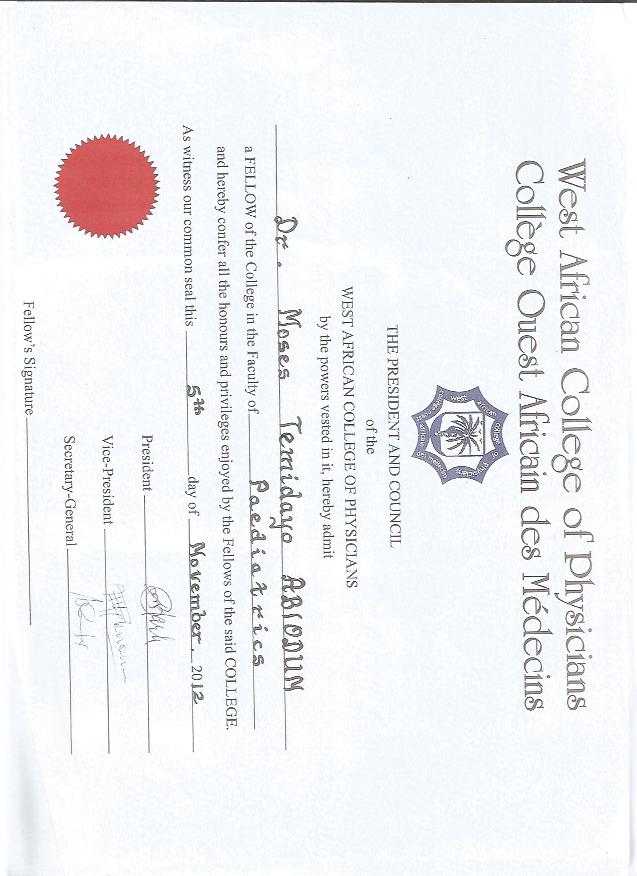 West African College of Physicians
Collège Ouest Africain des Médecins
THE PRESIDENT AND COUNCIL
of the
WEST AFRICAN COLLEGE OF PHYSICIANS
by the powers vested in it, hereby admit
Dr. Moses Temidayo ABIODUN
a FELLOW of the College in the Faculty of Paediatrics
and hereby confer all the honours and privileges enjoyed by the Fellows of the said COLLEGE.
As witness our common seal this 5th day of November, 2012
President
Vice-President
Secretary-General
Fellow's Signature